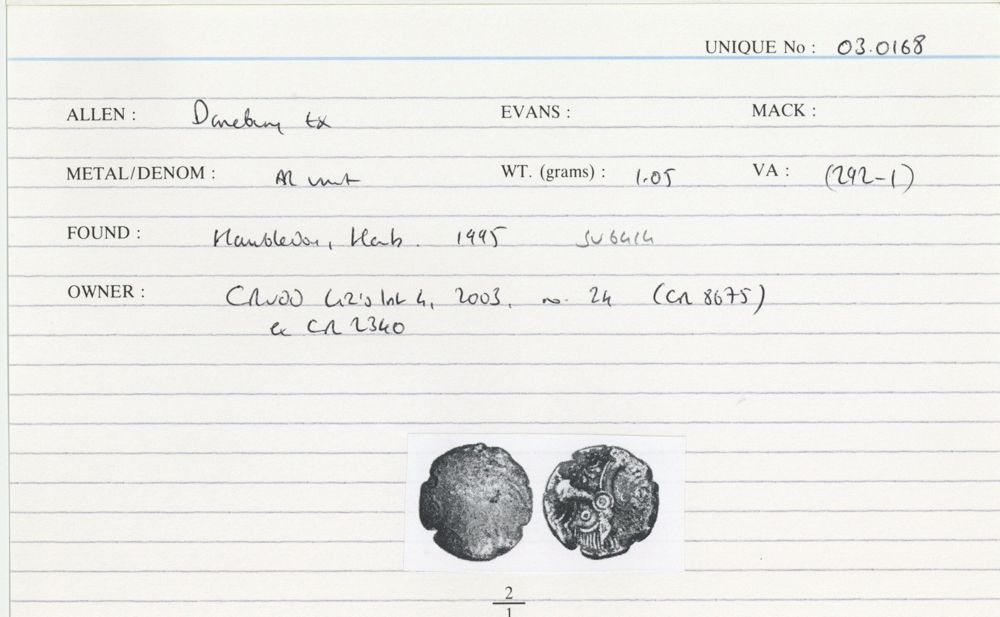 UNIQUE No : 03.0168
ALLEN : Danebury tx EVANS : MACK :
METAL/DENOM : AR unit WT. (grams) : 1.05 VA : (292-1)
FOUND : Hambledon, Hants. 1995 SU6414
OWNER : 4, 2003, no. 24 (CR 8675)
ex CR 2340
2
1